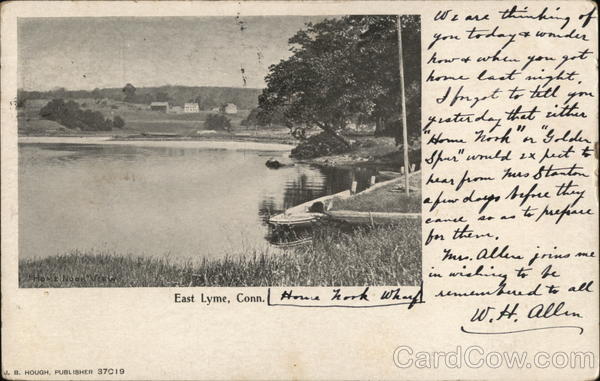 We are thinking of
you today & wonder
how & when you got
home last night.
I forgot to tell you
yesterday that either
"Home Nook" or "Golden
Spur" would expect to
hear from Mrs Stanton
a few days before they
came so as to prepare
for them.
Mrs. Allen joins me
in wishing to be
remembered to all
W. H. Allen
HOME NOOK VIEW
East Lyme, Conn. Home Nook Wharf
J. B. HOUGH, PUBLISHER 37C19
CardCow.com